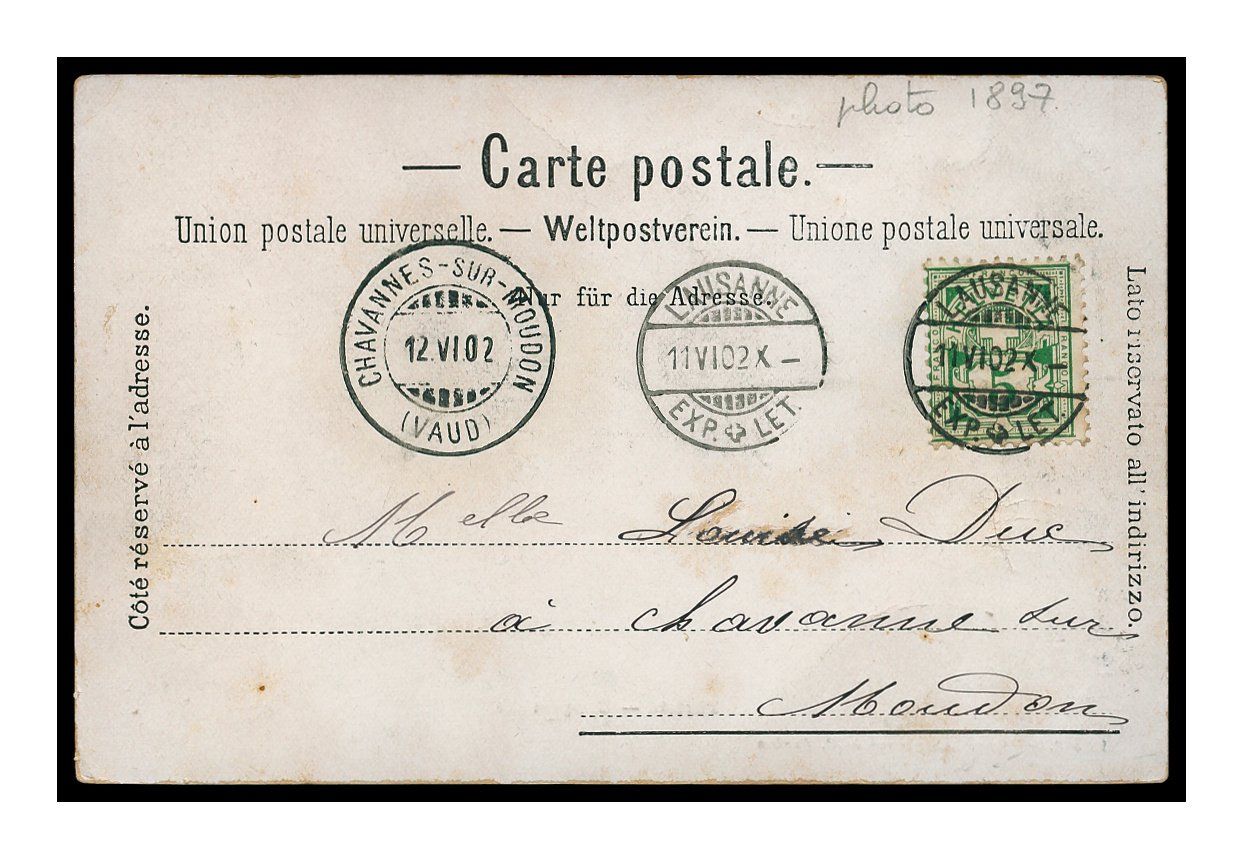 photo 1897
— Carte postale. —
Union postale universelle. — Weltpostverein. — Unione postale universale.
Nur für die Adresse.
CHAVANNES-SUR-MOUDON
12.VI.02
(VAUD)
LAUSANNE
11 VI 02 X —
EXP. LET.
LAUSANNE
11 VI 02 X —
EXP. LET.
FRANCO
5
Côté réservé à l'adresse.
Lato riservato all' indirizzo.
Melle Louise Duc
à Chavanne sur
Moudon